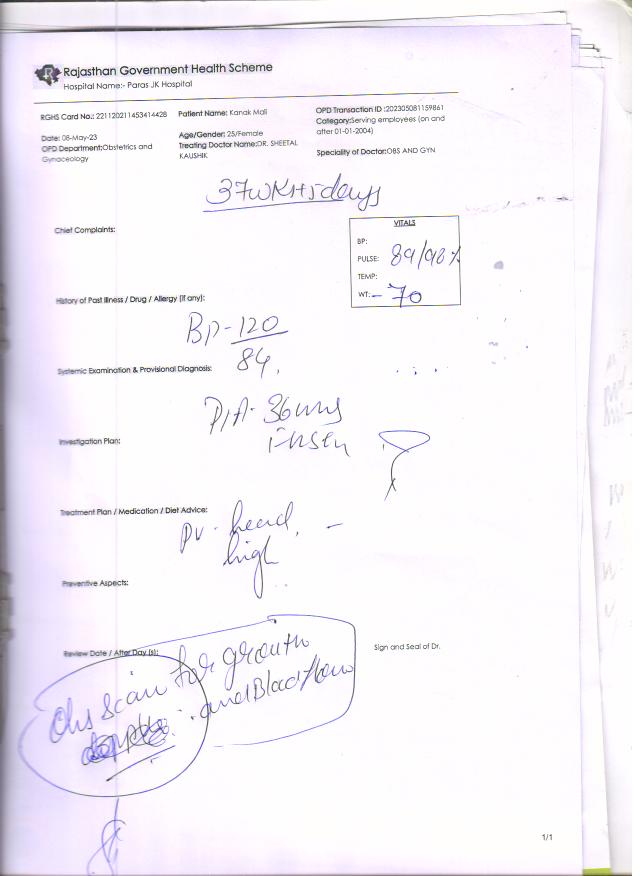 Rajasthan Government Health Scheme
Hospital Name:- Paras JK Hospital
RGHS Card No.: 221120211453414428
Patient Name: Kanak Mali
OPD Transaction ID :202305081159861
Category:Serving employees (on and after 01-01-2004)
Date: 08-May-23
Age/Gender: 25/Female
OPD Department:Obstetrics and Gynaecology
Treating Doctor Name:DR. SHEETAL KAUSHIK
Speciality of Doctor:OBS AND GYN
37WK+5days
Chief Complaints:
VITALS
BP:
PULSE: 89/98%
TEMP:
WT:- 70
History of Past Illness / Drug / Allergy (if any):
BP-120
84
Systemic Examination & Provisional Diagnosis:
P/A- 36wks
Investigation Plan:
Treatment Plan / Medication / Diet Advice:
PV- head
high
Preventive Aspects:
Review Date / After Day (s):
Sign and Seal of Dr.
Obs scan for growth
and Blood flow
1/1